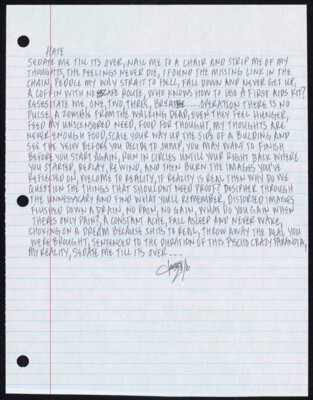 HATE
SEDATE ME TILL ITS OVER, NAIL ME TO A CHAIR AND STRIP ME OF MY
THOUGHTS, THE FEELINGS NEVER DIE, I FOUND THE MISSING LINK IN THE
CHAIN, PEDDLE MY WAY STRAIT TO HELL, FALL DOWN AND NEVER GET UP,
A COFFIN WITH NO ESCAPE ROUTE, WHO KNOWS HOW TO USE A FIRST AIDS KIT?
RESESITATE ME, ONE, TWO, THREE, BREATHE.....OPERATION THERE IS NO
PULSE, A ZOMBIE FROM THE WALKING DEAD, EVEN THEY FEEL HUNGER,
FEED MY UNCENSORED NEED, FOOD FOR THOUGHT, MY THOUGHTS ARE
NEVER ENOUGH FOOD, SCALE YOUR WAY UP THE SIDE OF A BULDING AND
SEE THE VEIW BEFORE YOU DECIDE TO JUMP, YOU MAY WANT TO FINISH
BEFORE YOU START AGAIN, RUN IN CIRCLES UNTIL YOUR RIGHT BACK WHERE
YOU STARTED, REPLAY, REWIND, AND THEN BURN THE IMAGES YOU'VE
REFLECTED ON, WELCOME TO REALITY, IF REALITY IS REAL THEN WHY DO WE
QUESTION THE THINGS THAT SHOULDNT NEED PROOF? DESIPHER THROUGH
THE UNNESSACARY AND FIND WHAT YOU'LL REMEMBER, DISTORTED IMAGES
FLUSHED DOWN A DRAIN, NO PAIN, NO GAIN, WHAT DO YOU GAIN WHEN
THERES ONLY PAIN?, A CONSTANT ACHE, FALL ASLEEP AND NEVER WAKE,
CHOKING ON A DREAM BECAUSE SHITS TO REAL, THROW AWAY THE DEAL YOU
WERE BROUGHT, SENTENCED TO THE DURATION OF THIS PSYCHO CRAZY PARANOIA,
MY REALITY, SEDATE ME TILL ITS OVER.....